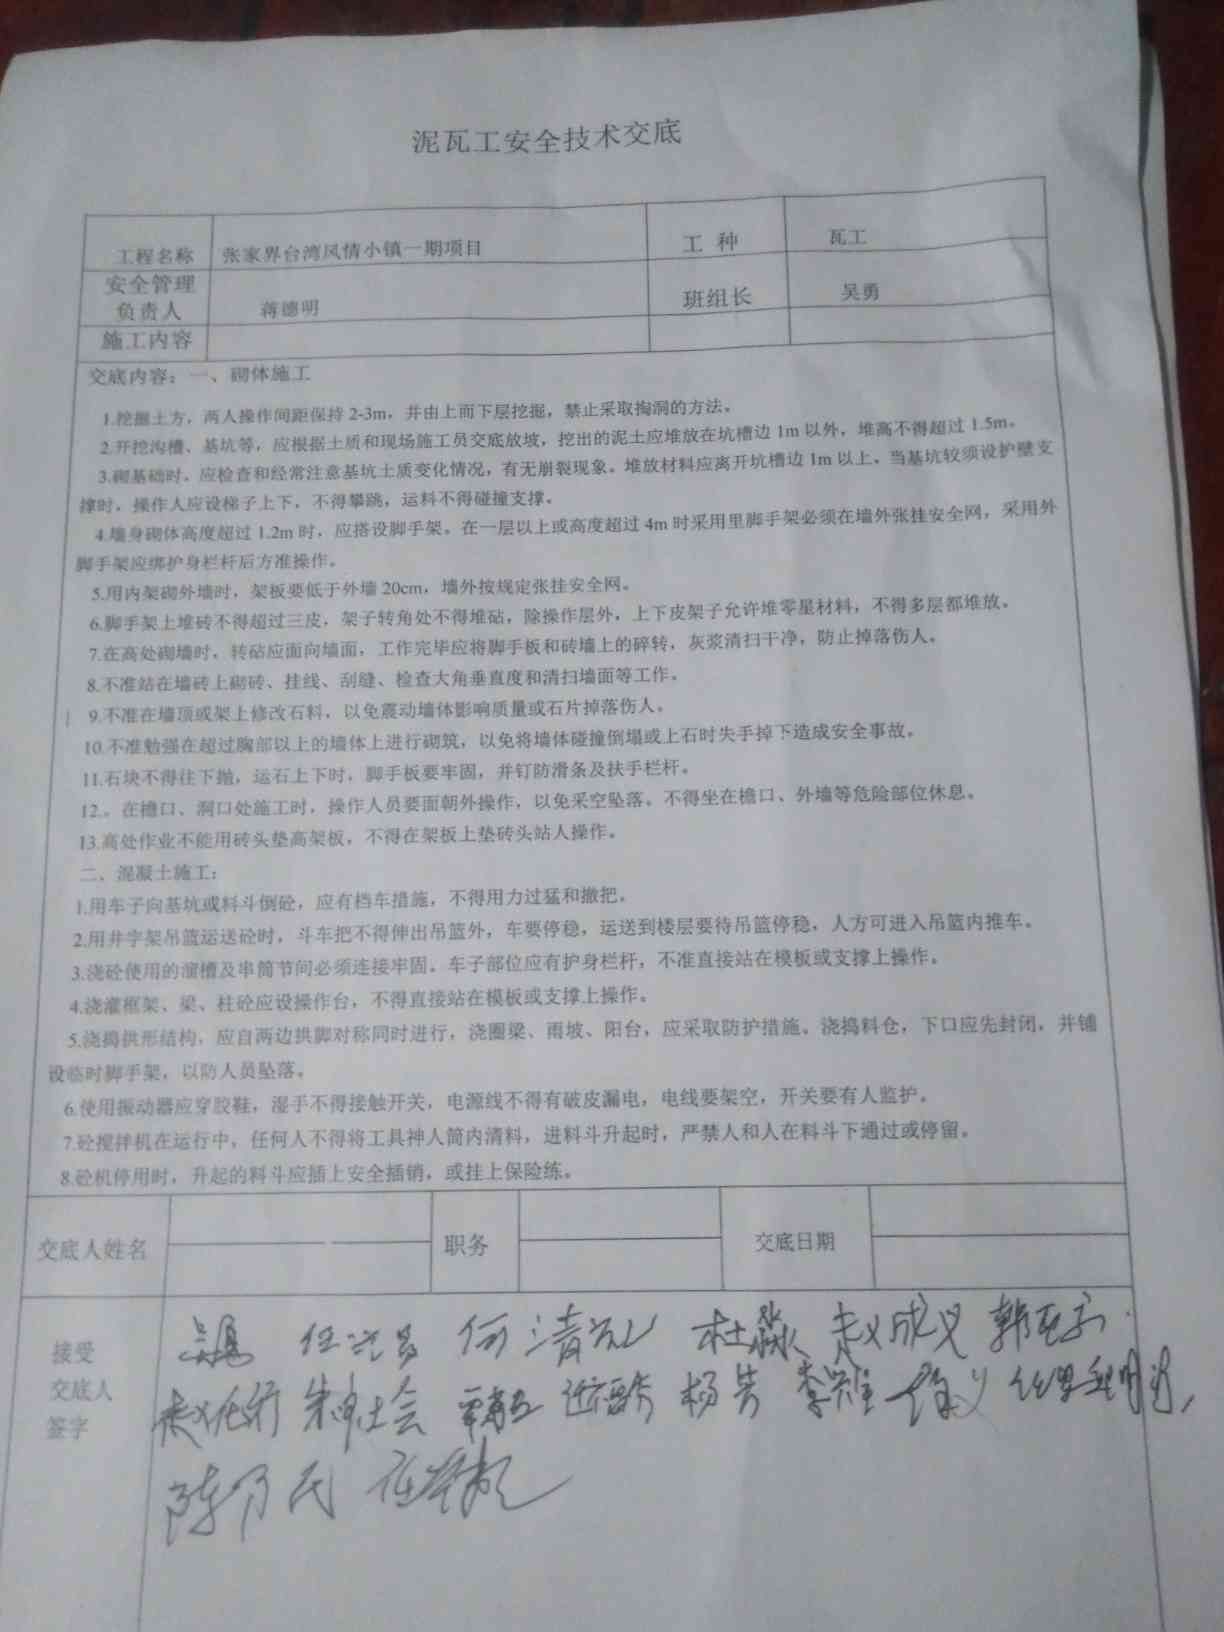 泥瓦工安全技术交底
工程名称 张家界台湾风情小镇一期项目 工 种 瓦工
安全管理负责人 蒋德明 班组长 吴勇
施工内容
交底内容：一、砌体施工
1.挖掘土方，两人操作间距保持 2-3m，并由上而下层挖掘，禁止采取掏洞的方法。
2.开挖沟槽、基坑等，应根据土质和现场施工员交底放坡，挖出的泥土应堆放在坑槽边 1m 以外，堆高不得超过 1.5m。
3.砌基础时，应检查和经常注意基坑土质变化情况，有无崩裂现象。堆放材料应离开坑槽边 1m 以上，当基坑较须设护壁支
撑时，操作人应设梯子上下，不得攀跳，运料不得碰撞支撑。
4.墙身砌体高度超过 1.2m 时，应搭设脚手架。在一层以上或高度超过 4m 时采用里脚手架必须在墙外张挂安全网，采用外
脚手架应绑护身栏杆后方准操作。
5.用内架砌外墙时，架板要低于外墙 20cm，墙外按规定张挂安全网。
6.脚手架上堆砖不得超过三皮，架子转角处不得堆砧，除操作层外，上下皮架子允许堆零星材料，不得多层都堆放。
7.在高处砌墙时，转砧应面向墙面，工作完毕应将脚手板和砖墙上的碎转，灰浆清扫干净，防止掉落伤人。
8.不准站在墙砖上砌砖、挂线、刮缝、检查大角垂直度和清扫墙面等工作。
9.不准在墙顶或架上修改石料，以免震动墙体影响质量或石片掉落伤人。
10.不准勉强在超过胸部以上的墙体上进行砌筑，以免将墙体碰撞倒塌或上石时失手掉下造成安全事故。
11.石块不得往下抛，运石上下时，脚手板要牢固，并钉防滑条及扶手栏杆。
12.。在檐口、洞口处施工时，操作人员要面朝外操作，以免采空坠落。不得坐在檐口、外墙等危险部位休息。
13.高处作业不能用砖头垫高架板，不得在架板上垫砖头站人操作。
二、混凝土施工：
1.用车子向基坑或料斗倒砼，应有档车措施，不得用力过猛和撤把。
2.用井字架吊篮运送砼时，斗车把不得伸出吊篮外，车要停稳，运送到楼层要待吊篮停稳，人方可进入吊篮内推车。
3.浇砼使用的溜槽及串筒节间必须连接牢固。车子部位应有护身栏杆，不准直接站在模板或支撑上操作。
4.浇灌框架、梁、柱砼应设操作台，不得直接站在模板或支撑上操作。
5.浇捣拱形结构，应自两边拱脚对称同时进行，浇圈梁、雨坡、阳台，应采取防护措施。浇捣料仓，下口应先封闭，并铺
设临时脚手架，以防人员坠落。
6.使用振动器应穿胶鞋，湿手不得接触开关，电源线不得有破皮漏电，电线要架空，开关要有人监护。
7.砼搅拌机在运行中，任何人不得将工具神人筒内清料，进料斗升起时，严禁人和人在料斗下通过或停留。
8.砼机停用时，升起的料斗应插上安全插销，或挂上保险练。
交底人姓名 职务 交底日期
接受交底人签字
何清 杜淼 赵成义
杨芳 李雄
陈乃民